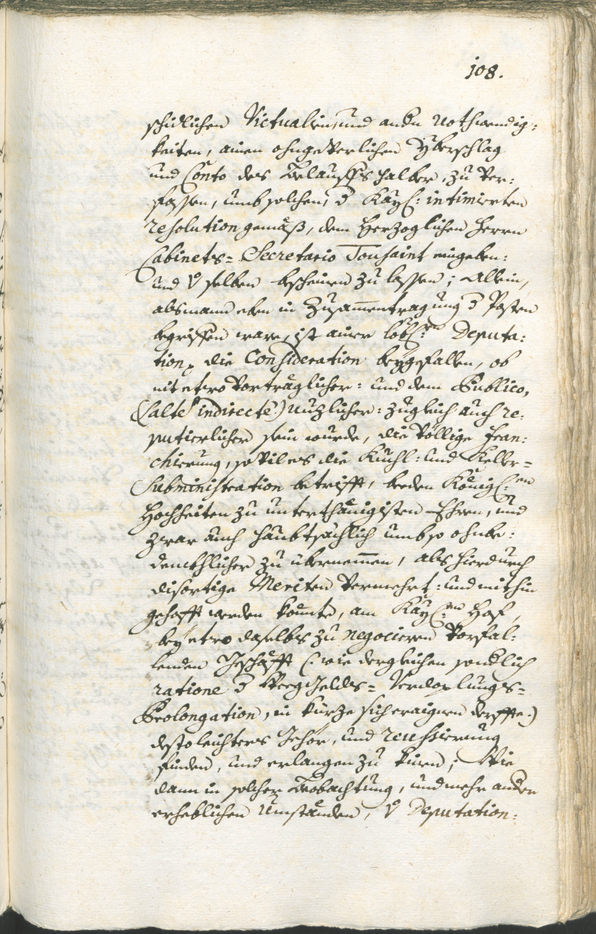 108.
schidlichen Victualien, und andn nothwendig:
keiten, ainen ohngeverlichen Yberschlag
und Conto des Belauffs halber, zu ver:
fassen, umb solchen, d Kayl: intimierten
resolution gemäß, dem Herzoglichen Herrn
Cabinets= Secretario Tousaint eingeben:
und selben bscheinen zu lassen; Allein,
als man eben in Zusammentragung d Posten
begriffen ware, ist ainer löbl: Deputa:
tion, die Consideration beygefallen, ob
nit etwo vorträglicher: und dem Publico,
(:alte indirecte:) nuzlicher: zugleich auch re:
putierlicher sein wurde, die völlige fran:
chierung, so vil es die Kuchl: und Keller=
Subministration betrifft, beeden Königl:en
Hochheiten zu unterthänigisten Ehren, und
zwar auch haubtsächlich umb so ohnbe:
denckhlicher zu übernemmen, als hierdurch
disortige Meriten vermehrt: und mithin
gehofft werden könnte, am Kayl:en Hof
bey etwo daselbs zu negocieren vorfal:
lenden Geschäfft (:wie dergleichen sondlich
ratione d Weeggelds= Verdoplungs=
Prolongation, in kürze sich eraignen derffte:)
desto leichters Gehör, und reussierung
finden, und erlangen zu könen; Wie
dann in solcher Beobachtung, und mehr andern
erheblichen Umständen, Deputation: